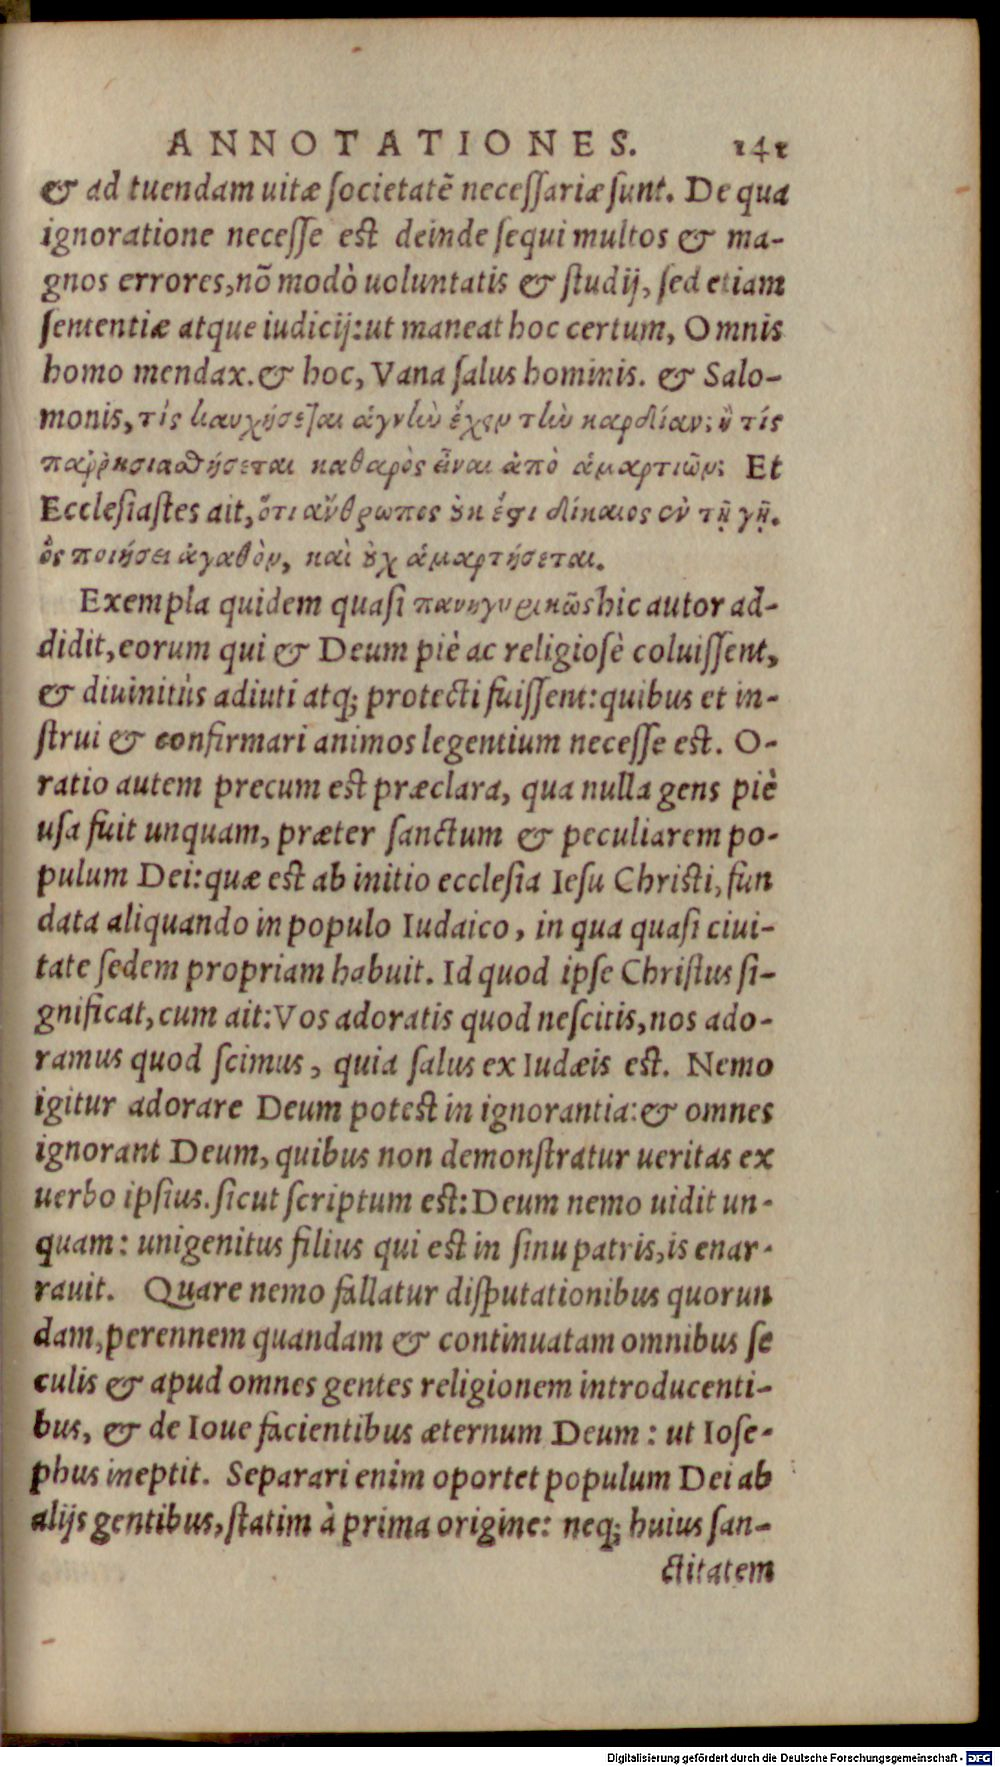 ANNOTATIONES. 141
& ad tuendam uitæ ſocietatẽ neceſſariæ ſunt. De qua
ignoratione neceſſe eſt deinde ſequi multos & ma-
gnos errores, nõ modò uoluntatis & ſtudij, ſed etiam
ſententiæ atque iudicij: ut maneat hoc certum, Omnis
homo mendax. & hoc, Vana ſalus hominis. & Salo-
monis, τίς καυχήσεται ἁγνὴν ἔχειν τὴν καρδίαν; ἢ τίς
παῤῥησιασθήσεται καθαρὸς εἶναι ἀπὸ ἁμαρτιῶν; Et
Eccleſiaſtes ait, ὅτι ἄνθρωπος οὐκ ἔστι δίκαιος ἐν τῇ γῇ.
ὃς ποιήσει ἀγαθὸν, καὶ οὐχ ἁμαρτήσεται.
Exempla quidem quaſi πανηγυρικῶς hic autor ad-
didit, eorum qui & Deum piè ac religioſè coluiſſent,
& diuinitùs adiuti atq; protecti fuiſſent: quibus et in-
ſtrui & confirmari animos legentium neceſſe eſt. O-
ratio autem precum eſt præclara, qua nulla gens piè
uſa fuit unquam, præter ſanctum & peculiarem po-
pulum Dei: quæ eſt ab initio eccleſia Ieſu Chriſti, fun
data aliquando in populo Iudaico, in qua quaſi ciui-
tate ſedem propriam habuit. Id quod ipſe Chriſtus ſi-
gnificat, cum ait: Vos adoratis quod neſcitis, nos ado-
ramus quod ſcimus, quia ſalus ex Iudæis eſt. Nemo
igitur adorare Deum poteſt in ignorantia: & omnes
ignorant Deum, quibus non demonſtratur ueritas ex
uerbo ipſius. ſicut ſcriptum eſt: Deum nemo uidit un-
quam: unigenitus filius qui eſt in ſinu patris, is enar-
rauit. Quare nemo fallatur diſputationibus quorun
dam, perennem quandam & continuatam omnibus ſe
culis & apud omnes gentes religionem introducenti-
bus, & de Ioue facientibus æternum Deum: ut Ioſe-
phus ineptit. Separari enim oportet populum Dei ab
alijs gentibus, ſtatim à prima origine: neq; huius ſan-
ctitatem
Digitalisierung gefördert durch die Deutsche Forschungsgemeinschaft - DFG